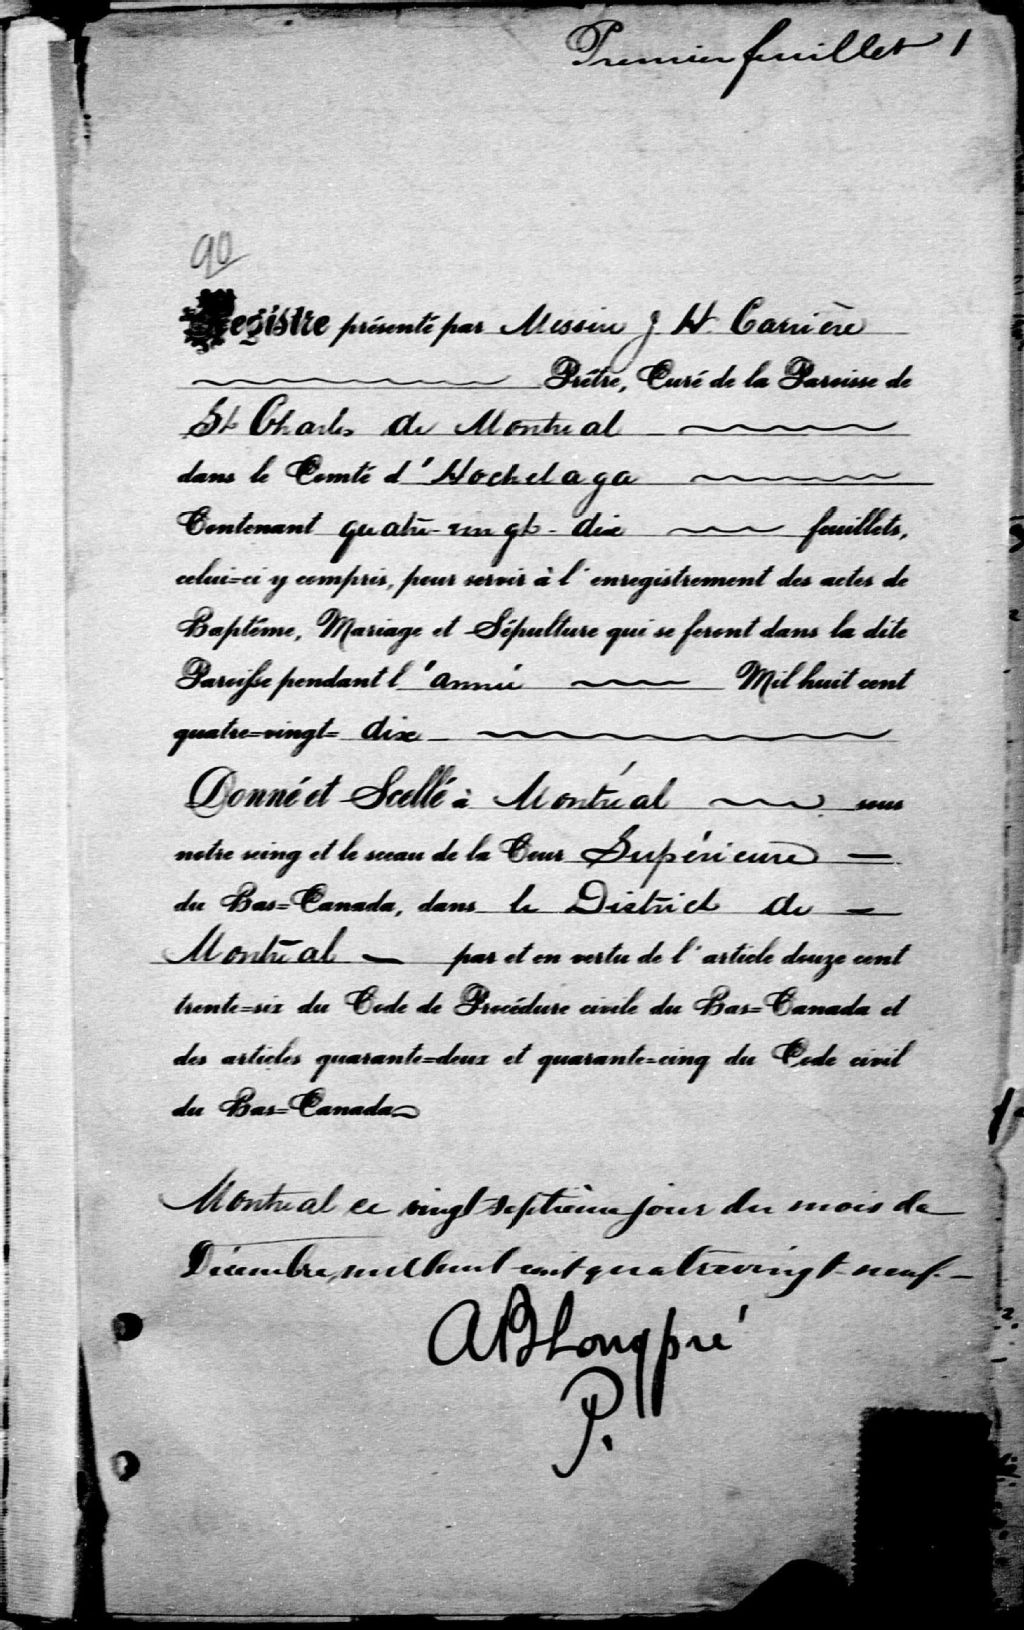 Premier feuillet 1
90
Registre présenté par Messire J H Carrière
Prêtre, Curé de la Paroisse de
St Charles de Montreal
dans le Comté d'Hochelaga
Contenant quatre-vingt-dix feuillets,
celui=ci y compris, pour servir à l'enregistrement des actes de
Baptême, Mariage et Sépulture qui se feront dans la dite
Paroisse pendant l'année Mil huit cent
quatre=vingt=dix
Donné et Scellé à Montréal sous
notre seing et le sceau de la Cour Supérieure
du Bas=Canada, dans le District de
Montréal par et en vertu de l'article douze cent
trente=six du Code de Procédure civile du Bas=Canada et
des articles quarante=deux et quarante=cinq du Code civil
du Bas=Canada
Montreal ce vingt-septième jour du mois de
Décembre, mil huit cent quatrevingt-neuf.
AB Longpré
P.